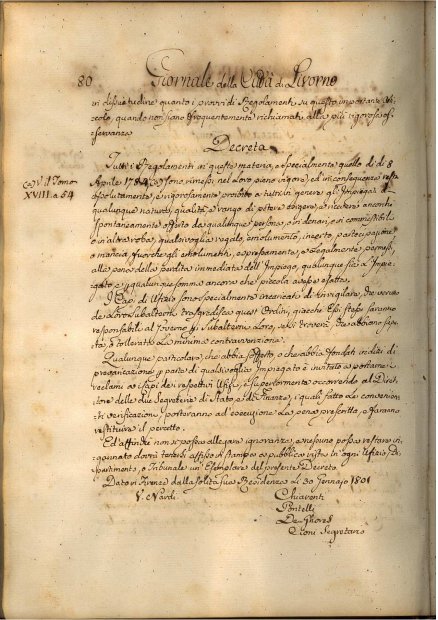 80 Giornale della Città di Livorno
in dissuetudine quanto i provvidi Regolamenti su questo importante Ar-
ticolo, quando non siano frequentemente richiamati alla più rigorosa os-
servanza
Decreta
Tutti i Regolamenti in questa materia, e specialmente quello di d. 8
Ca. V. 1 Tomo
XVIII. a 54
Aprile sono rimessi nel loro pieno vigore, ed in conseguenza resta
assolutamente, e rigorosamente proibito a tutti in genere gli Impiegati di
qualunque natura, qualità, e rango di potere esigere, e ricevere ancorché
spontaneamente offerto da qualunque persona, o in denari, o in commestibili
o in altra roba, qualsivoglia regalo, emolumento, incerto, partecipazione
o mancia fuorché gli emolumenti, espressamente, e legalmente permessi,
alla pena della perdita immediata dell'Impiego, qualunque sia l'Impie-
gato e qualunque somma ancora che piccola avesse esatta.
I Capi di Ufizio sono specialmente incaricati di invigilare, se veruno
de loro Subalterni trasgredisca questi Ordini, giacché Essi stessi saranno
responsabili al Governo Subalterni loro, si troverà, che abbiano sapu-
ta, o tollerata la minima contravvenzione.
Qualunque particolare, che abbia sofferto, o che abbia fondati indizi di
prevaricazione per parte di qualsivoglia Impiegato è invitato a portarne i
reclami a Capi dei rispettivi Ufizi, e superiormente occorrendo al Diret-
tore delle due Segreterie di Stato, e di Finanze, i quali fatte le convenien-
ti verificazioni porteranno ad esecuzione la pena prescritta, e faranno
restituire il percetto.
Ed affinché non si possa allegare ignoranza, e nessuno possa restare in-
gannato dovrà tenersi affisso in stampa a pubblica vista in ogni Ufizio, Di-
partimento, e Tribunale un Esemplare del presente Decreto.
Dato in Firenze dalla solita sua Residenza li 30 Gennajo 1801
V. Nardi. Chiarenti
Pontelli
De Ghores
Segretario